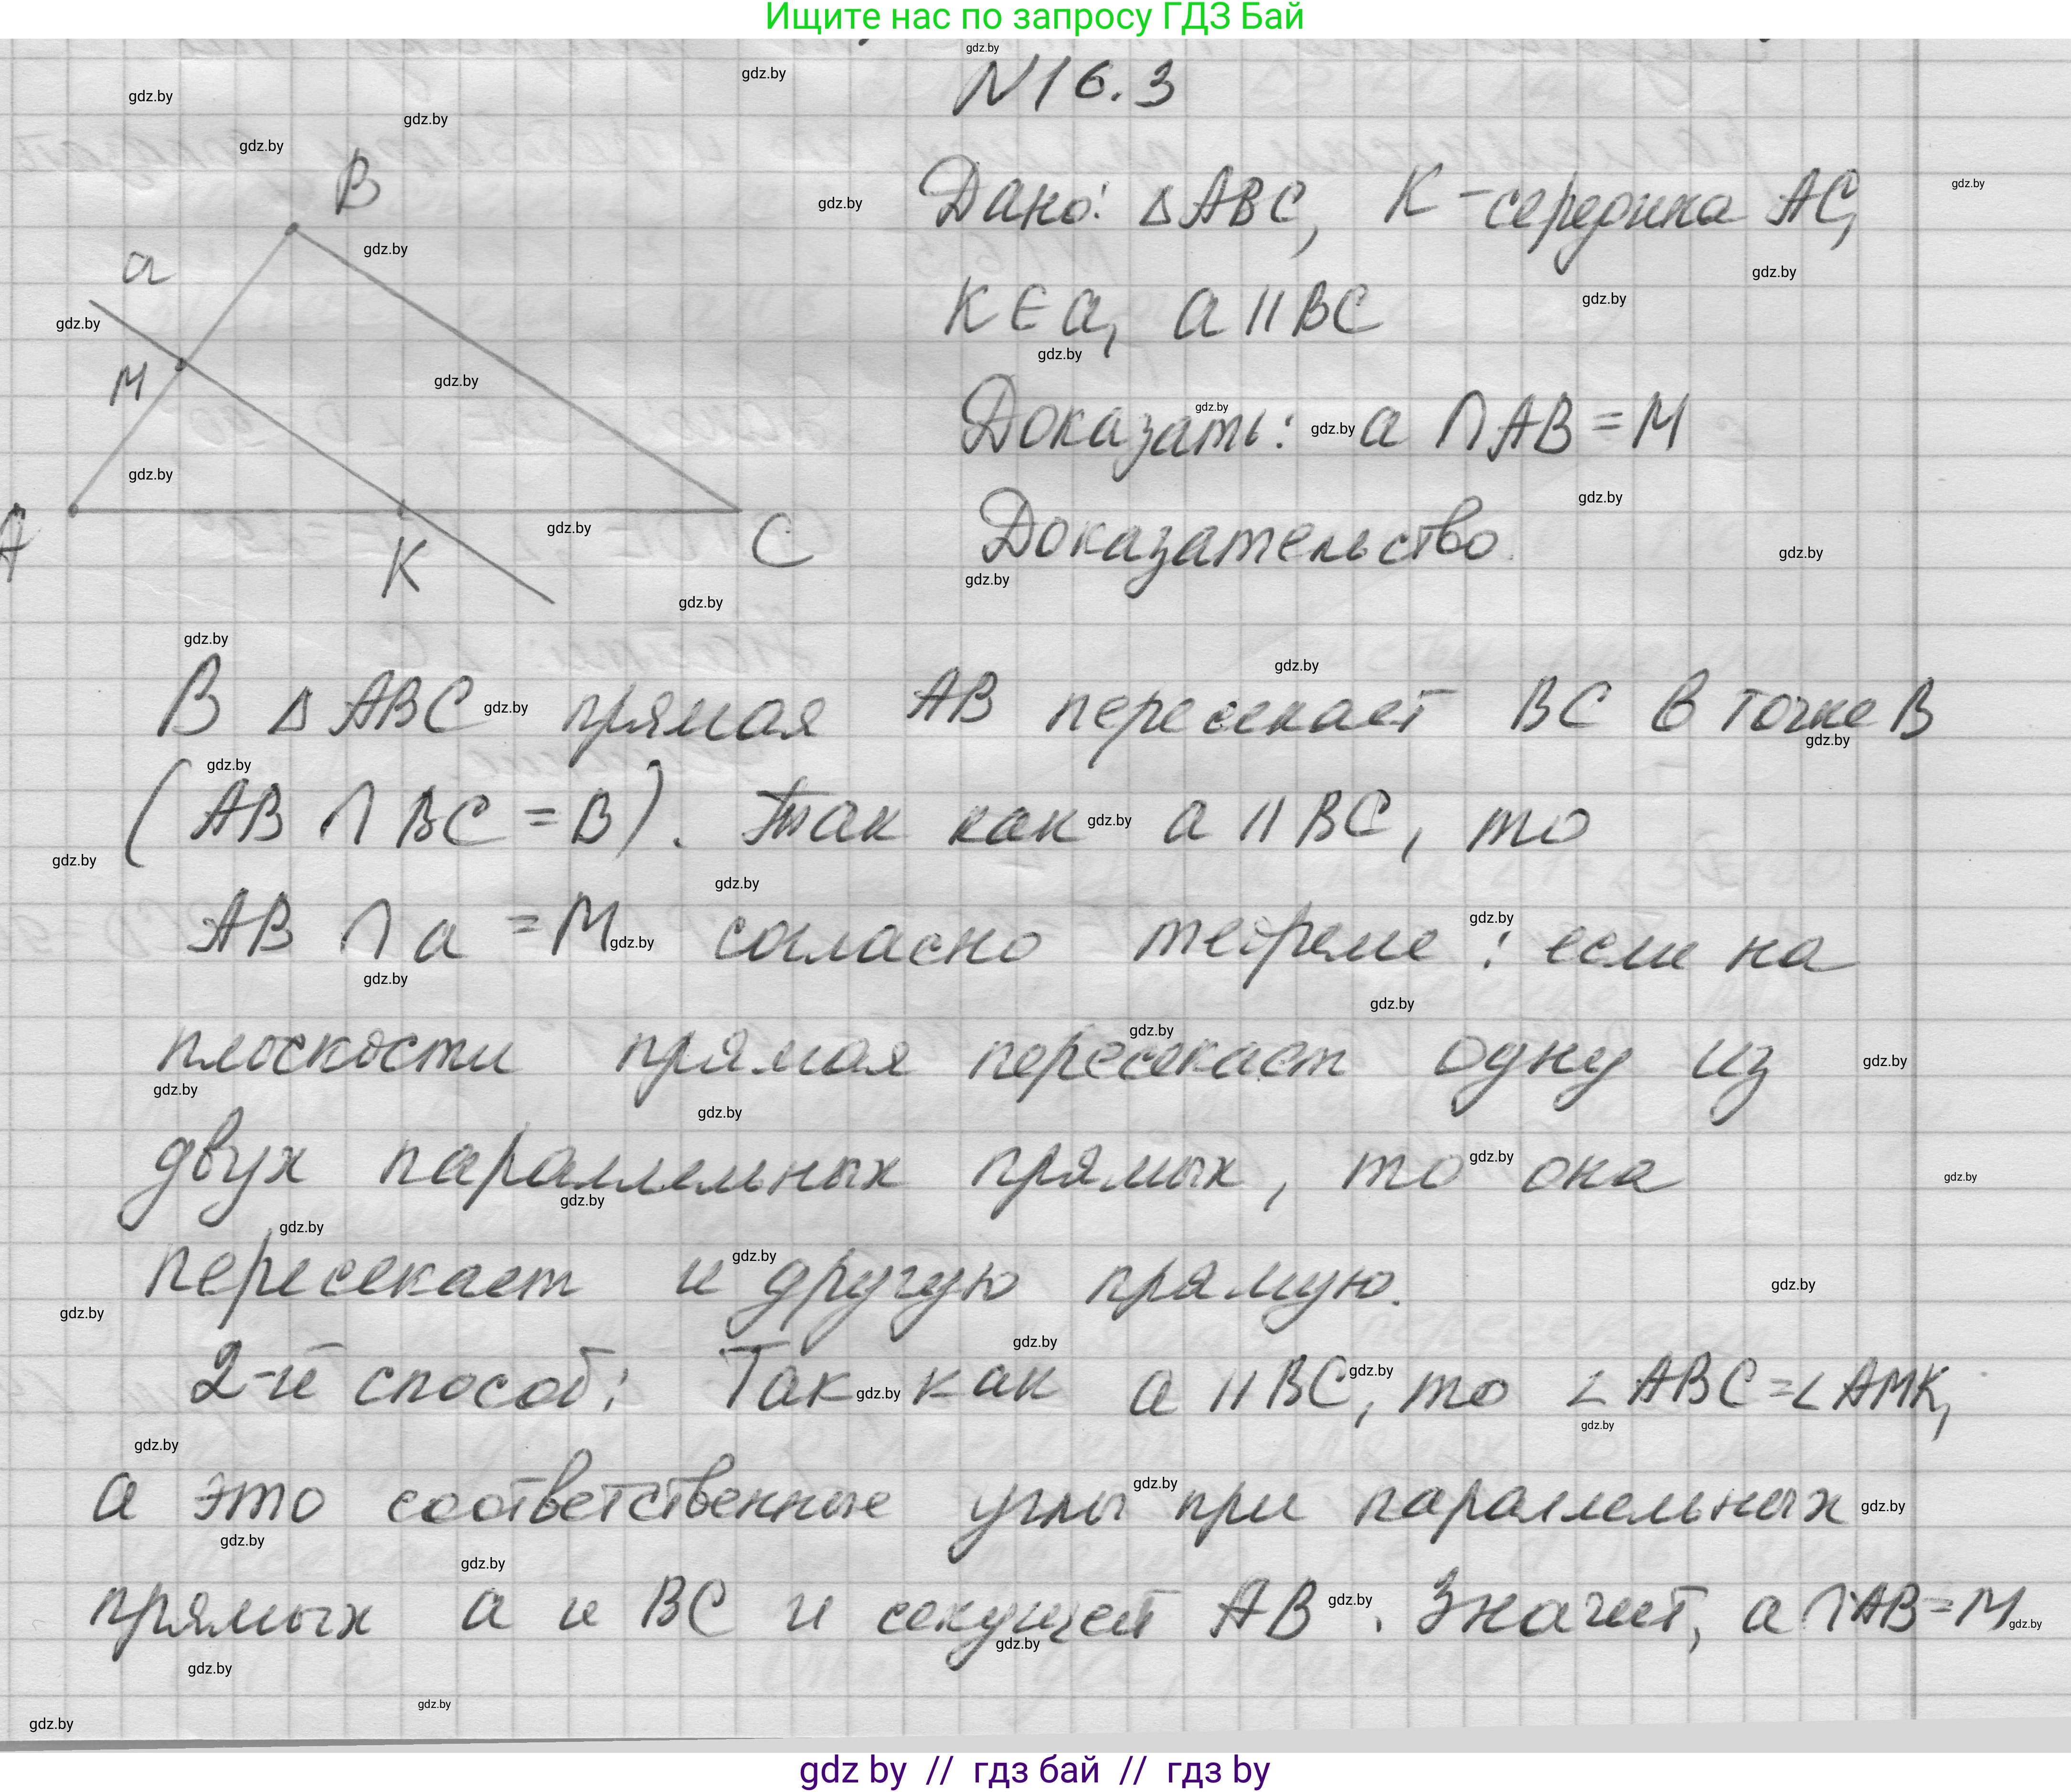 Ищите нас по запросу ГДЗ Бай
N16.3
Дано: △ABC, K - середина AC,
K ∈ a, a || BC
Доказать: a ∩ AB = M
Доказательство.
B
a
M
A
K
C
В △ABC прямая AB пересекает BC в точке B
(AB ∩ BC = B). Так как a || BC, то
AB ∩ a = M согласно теореме: если на
плоскости прямая пересекает одну из
двух параллельных прямых, то она
пересекает и другую прямую.
2-й способ: Так как a || BC, то ∠ABC = ∠AMK,
а это соответственные углы при параллельных
прямых a и BC и секущей AB. Значит, a ∩ AB = M
gdz.by
gdz by // гдз бай // гдз by